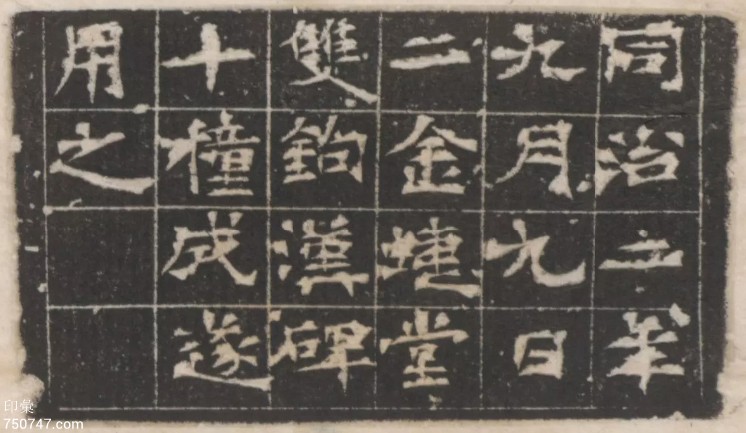 同治二年
九月九日
二金蜨堂
雙鉤漢碑
十穜成遂
用之
印彙
750747.com